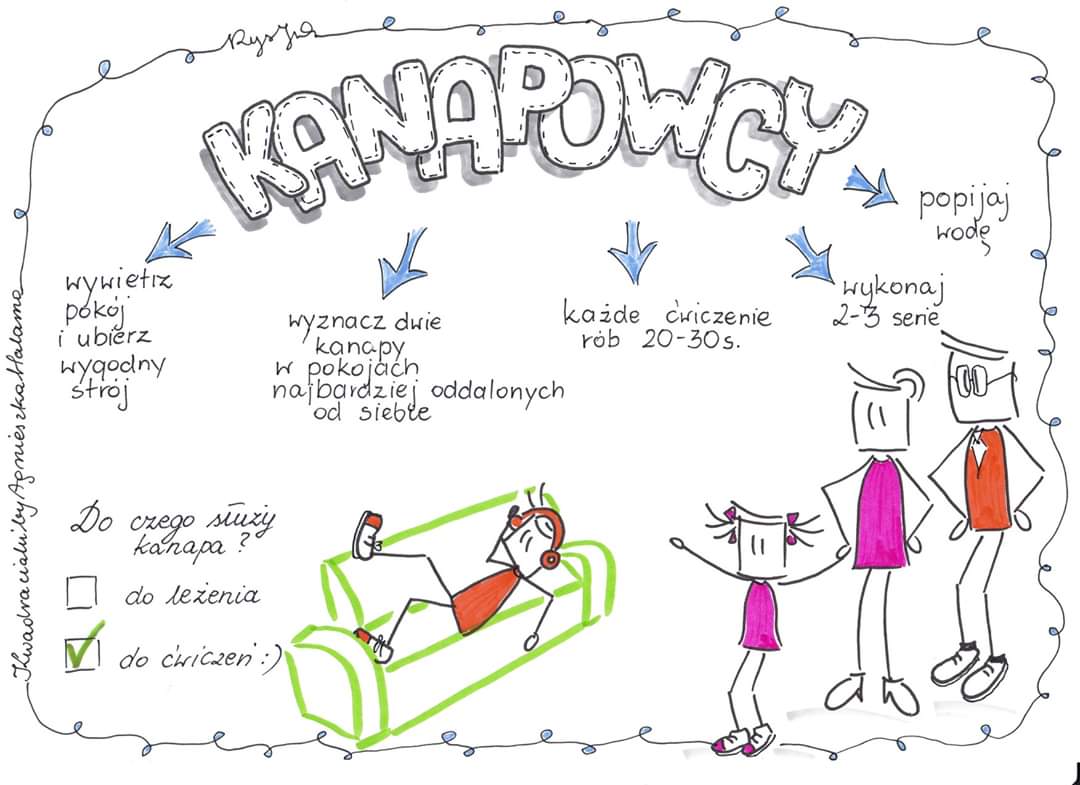 KANAPOWCY
wywietrz
pokój
i ubierz
wygodny
strój
wyznacz dwie
kanapy
w pokojach
najbardziej oddalonych
od siebie
każde ćwiczenie
rób 20-30s.
wykonaj
2-3 serie
popijaj
wodę
Do czego służy
kanapa?
do leżenia
do ćwiczeń :)
Kwadracialni by Agnieszka Halama